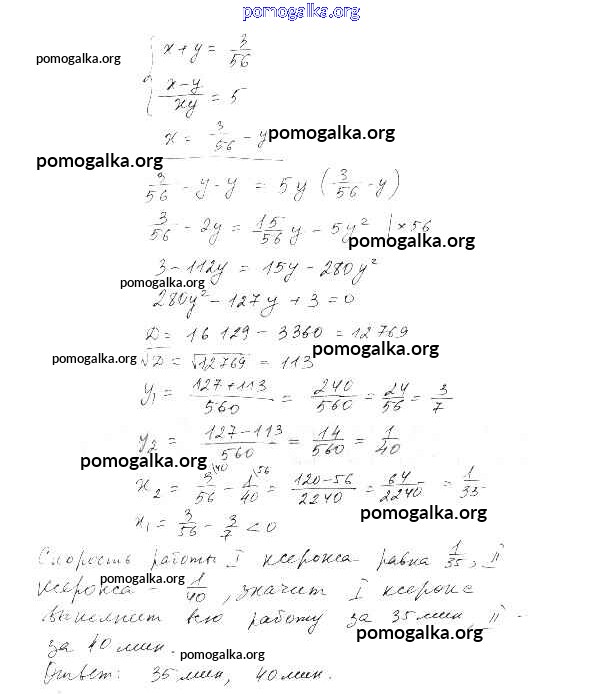 pomogalka.org
x + y = 3/56
pomogalka.org
(x-y)/(xy) = 5
x = 3/56 - y pomogalka.org
pomogalka.org
3/56 - y - y = 5y (3/56 - y)
3/56 - 2y = 15/56 y - 5y² | × 56
pomogalka.org
3 - 112y = 15y - 280y²
pomogalka.org
280y² - 127y + 3 = 0
D = 16129 - 3360 = 12769
pomogalka.org
pomogalka.org √D = √12769 = 113
y₁ = (127+113)/560 = 240/560 = 24/56 = 3/7
y₂ = (127-113)/560 = 14/560 = 1/40
pomogalka.org
x₂ = 3/56 \40 - 1/40 \56 = (120-56)/2240 = 64/2240 = 1/35
pomogalka.org
x₁ = 3/56 - 3/7 < 0
Скорость работы I ксерокса равна 1/35, II
ксерокса - 1/40, значит I ксерокс
pomogalka.org
выполнит всю работу за 35 мин, II -
pomogalka.org
за 40 мин.
pomogalka.org
Ответ: 35 мин, 40 мин.
pomogalka.org